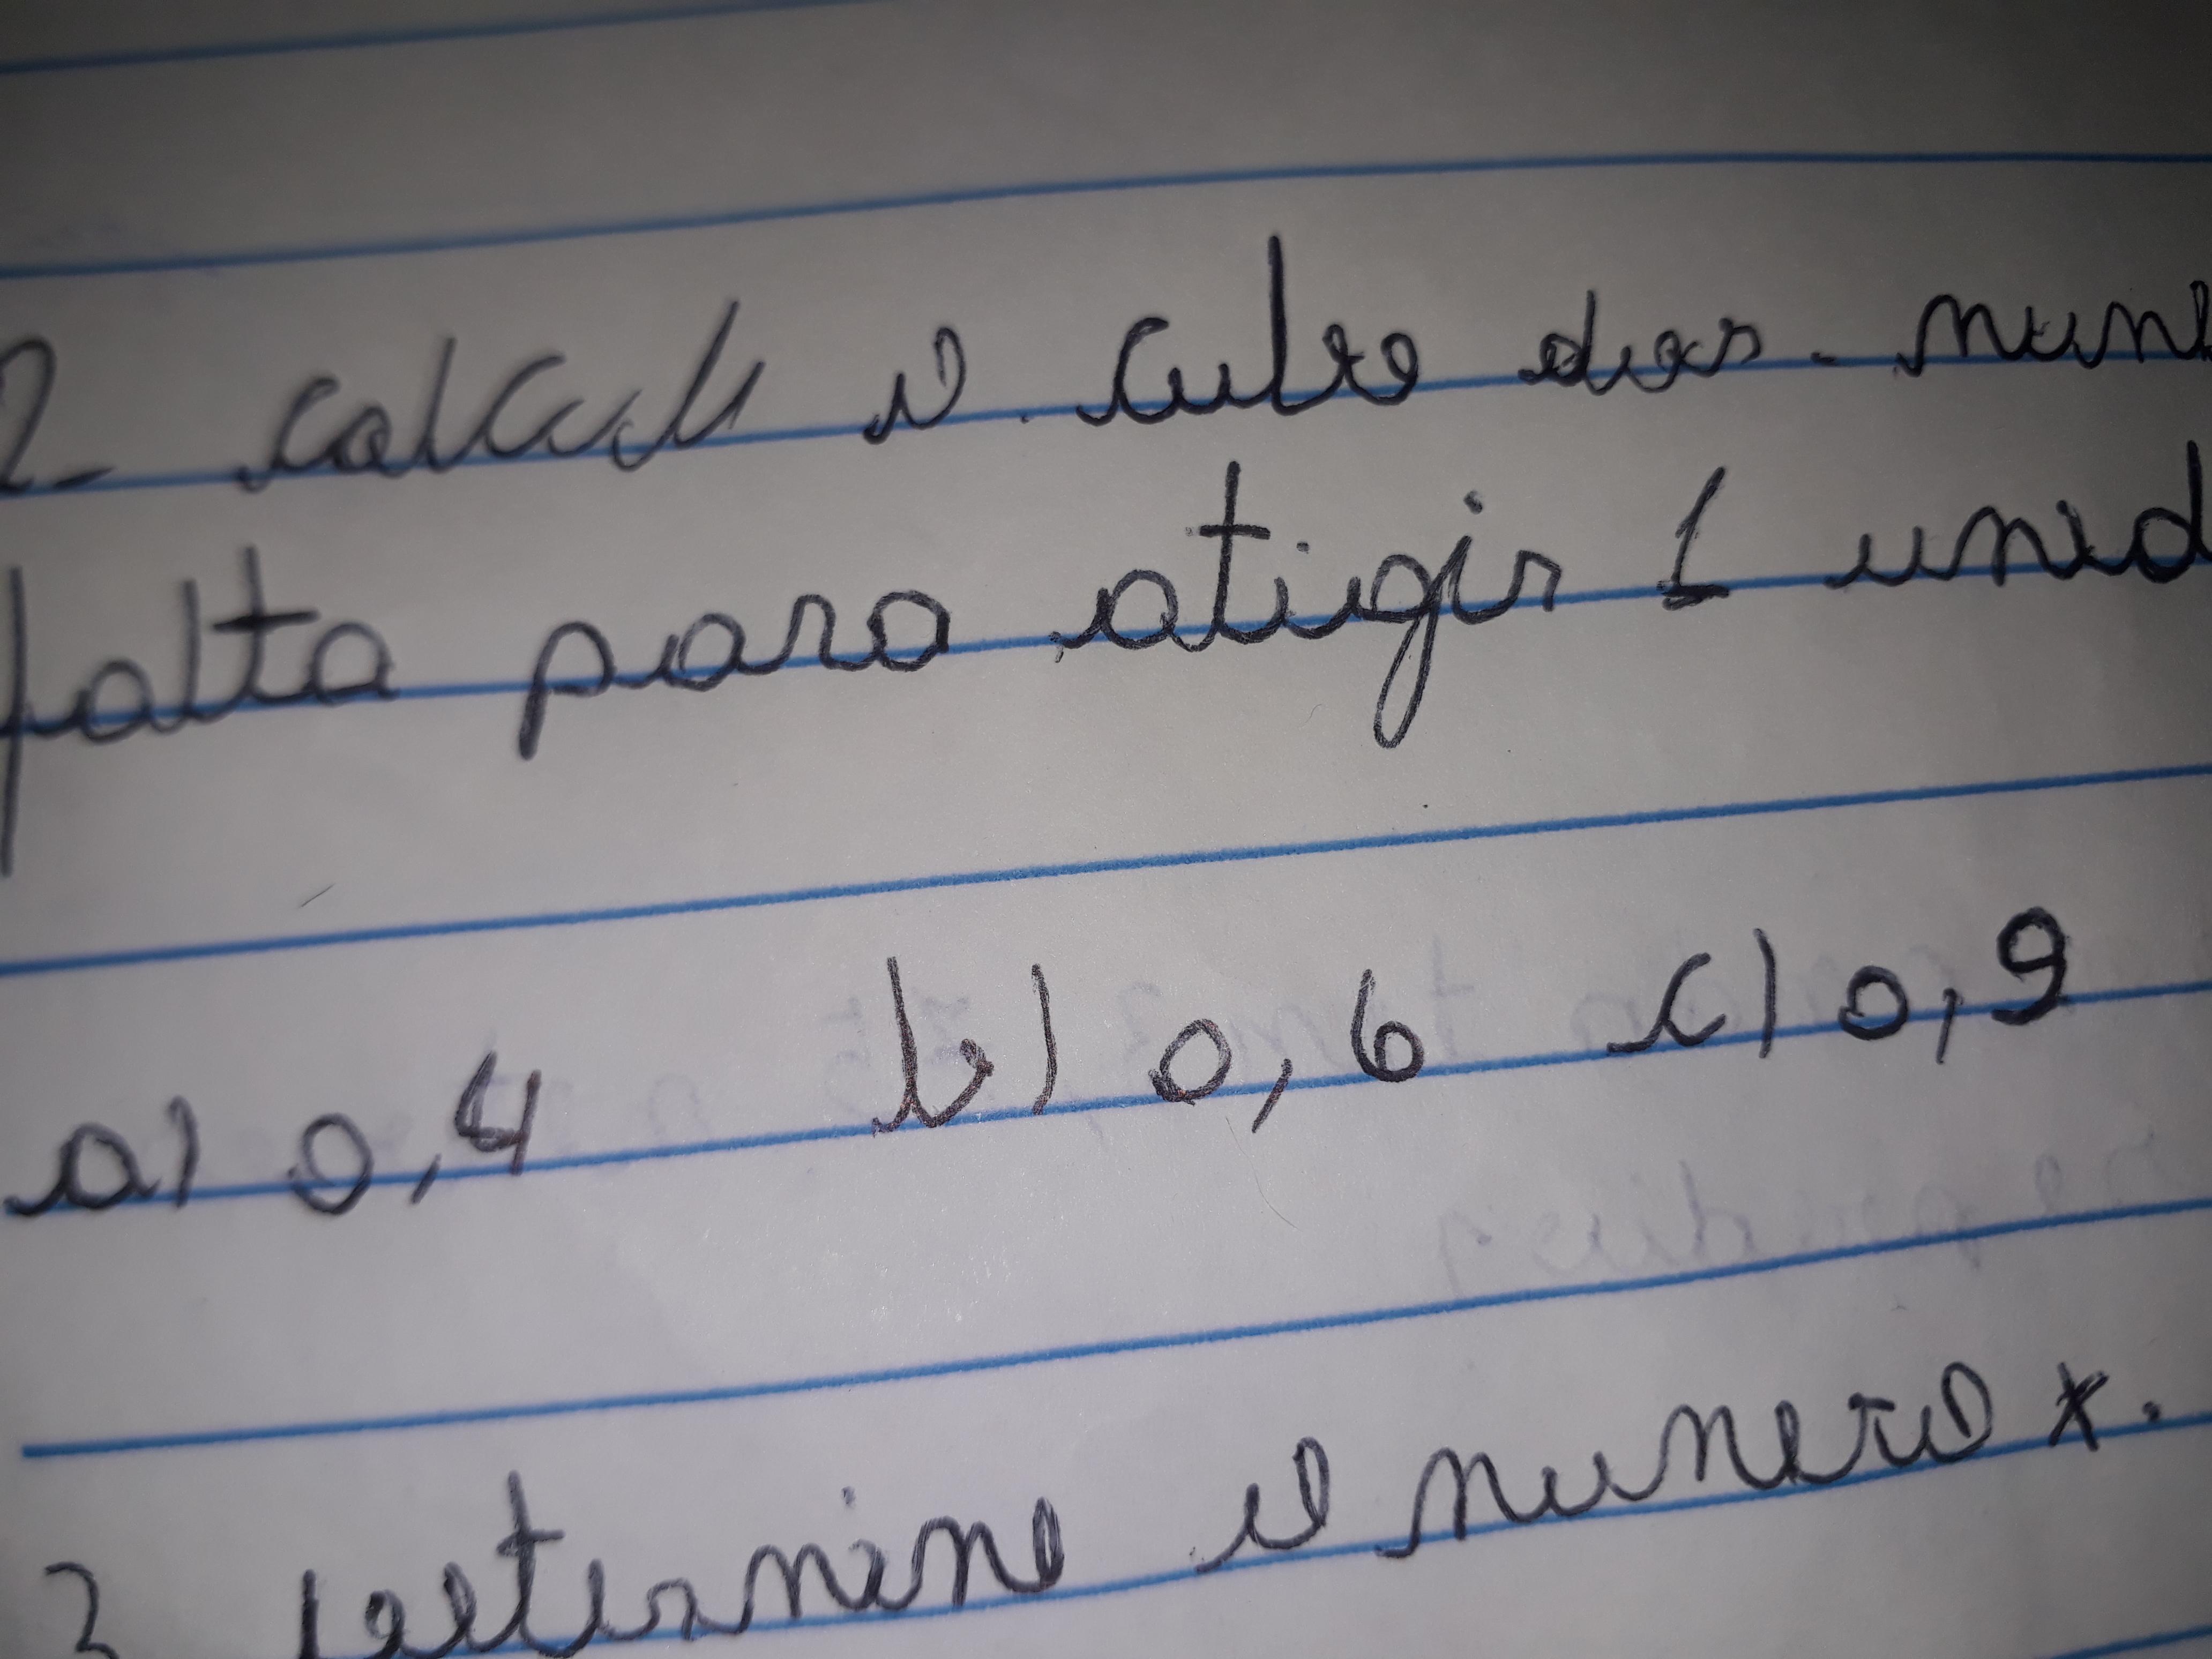 2- calcule o cubo dos nume
falta para atigir 1 unid
a) 0,4 b) 0,6 c) 0,9
3 determine o numero x.